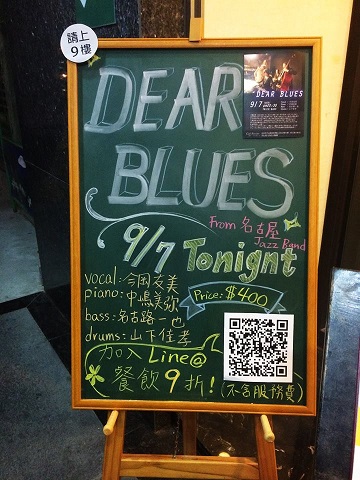 請上
9樓
DEAR
BLUES
DEAR BLUES
9/7
From 名古屋
Jazz Band
9/7 Tonight
vocal:今岡友美
piano:中嶋美弥
bass:名古路一也
drums:山下佳孝
Price:$400
加入Line@
餐飲9折!(不含服務費)